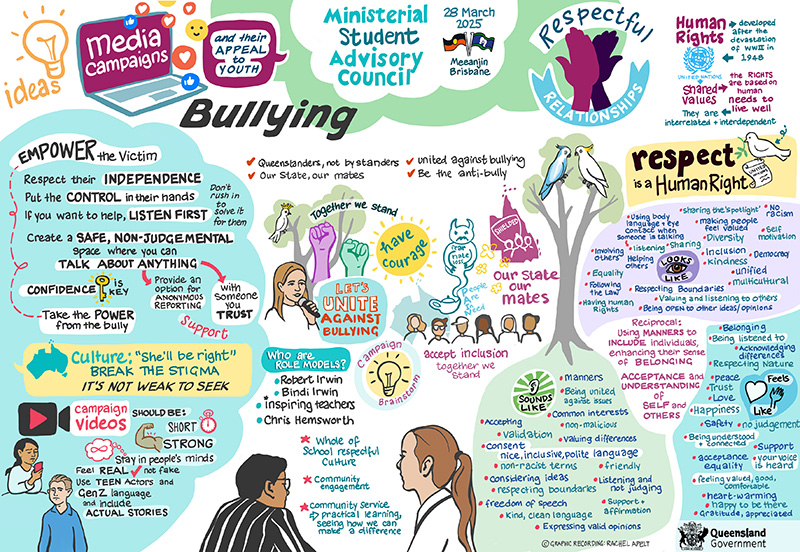 ideas
media
campaigns
and their
APPEAL
to YOUTH
Ministerial
Student
Advisory
Council
28 March
2025
Meeanjin
Brisbane
Respectful
RELATIONSHIPS
Human
Rights
developed
after the
devastation
of WWII in
1948
UNITED NATIONS
Shared
values
the RIGHTS
are based on
human
needs to
live well
They are
interrelated + interdependent
Bullying
EMPOWER the Victim
Respect their INDEPENDENCE
Put the CONTROL in their hands
If you want to help, LISTEN FIRST
Don't
rush in
to solve it
for them
Create a SAFE, NON-JUDGEMENTAL
space where you can
TALK ABOUT ANYTHING
CONFIDENCE is
KEY
Provide an
option for
ANONYMOUS
REPORTING
with
Someone
you
TRUST
Take the POWER
from the bully
Support
Culture: "She'll be right"
BREAK THE STIGMA
IT'S NOT WEAK TO SEEK
campaign
videos
SHOULD BE:
SHORT
STRONG
Stay in people's minds
Feel REAL not fake
Use TEEN Actors and
Gen Z language
and include
ACTUAL STORIES
Queenslanders, not by standers
Our State, our mates
united against bullying
Be the anti-bully
Together we stand
have
courage
LET'S
UNITE
AGAINST
BULLYING
SHIELDED
Our state
our
mates
accept inclusion
together we
stand
Who are
ROLE MODELS?
Robert Irwin
Bindi Irwin
inspiring teachers
Chris Hemsworth
Campaign
Brainstorm
Whole of
School respectful
Culture
Community
engagement
Community Service
practical learning,
seeing how we can
make a difference
respect
is a Human Right
LOOKS
LIKE
Using body
language + eye
contact when
someone is talking
sharing the 'spotlight'
making people
feel valued
No
racism
Self
motivation
Involving
others
listening
Sharing
Diversity
Helping
others
Inclusion
kindness
Democracy
Equality
unified
multicultural
Following
the Law
Respecting Boundaries
Having human
Rights
Valuing and listening to others
Being OPEN to other ideas/opinions
Reciprocal:
Using MANNERS to
INCLUDE individuals,
enhancing their sense
of BELONGING
ACCEPTANCE and
UNDERSTANDING
of
SELF and
OTHERS
SOUNDS
LIKE
manners
Being united
against issues
Common interests
Accepting
non-malicious
Validation
Valuing differences
consent
nice, inclusive, polite language
non-racist terms
friendly
Considering ideas
Listening and
not judging
respecting boundaries
freedom of speech
Support +
affirmation
Kind, clean language
Expressing valid opinions
Feels
Like
Belonging
Being listened to
Acknowledging
differences
Respecting Nature
peace
Trust
Love
Happiness
Safety
no judgement
Being understood
+ connected
Support
acceptance
equality
your voice
is heard
feeling valued, good,
comfortable
heart-warming
happy to be there
Gratitude, appreciated
© GRAPHIC RECORDING: RACHEL APELT
Queensland
Government